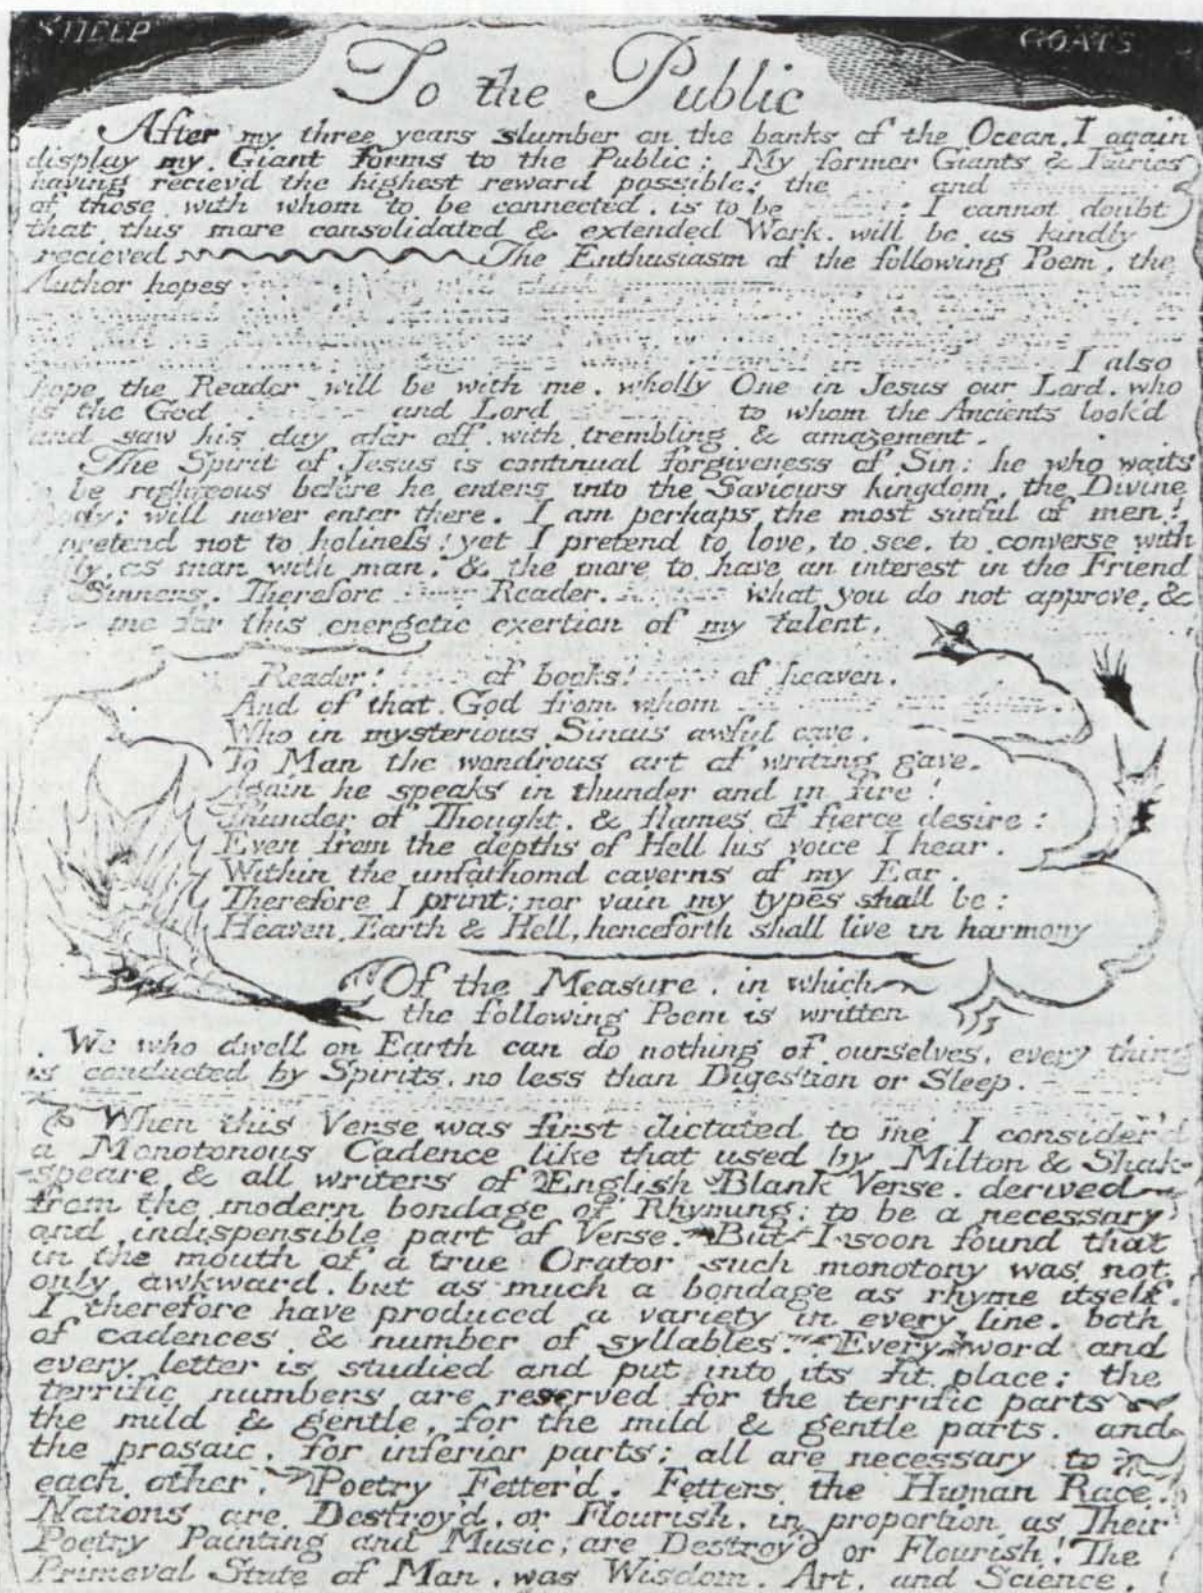 SHEEP
GOATS
To the Public
After my three years slumber on the banks of the Ocean, I again
display my Giant forms to the Public: My former Giants & Fairies
having reciev'd the highest reward possible: the and
of those with whom to be connected, is to be : I cannot doubt
that this more consolidated & extended Work, will be as kindly
recieved The Enthusiasm of the following Poem, the
Author hopes
I also
hope the Reader will be with me, wholly One in Jesus our Lord, who
is the God and Lord to whom the Ancients look'd
and saw his day afar off, with trembling & amazement.
The Spirit of Jesus is continual forgiveness of Sin: he who waits
be righteous before he enters into the Saviours kingdom, the Divine
Body; will never enter there. I am perhaps the most sinful of men!
pretend not to holiness! yet I pretend to love, to see, to converse with
as man with man, & the more to have an interest in the Friend
Sinners. Therefore Reader, what you do not approve, &
me for this energetic exertion of my talent.
Reader! of books! of heaven,
And of that God from whom
Who in mysterious Sinais awful cave,
To Man the wondrous art of writing gave,
Again he speaks in thunder and in fire!
Thunder of Thought, & flames of fierce desire:
Even from the depths of Hell his voice I hear,
Within the unfathomd caverns of my Ear.
Therefore I print; nor vain my types shall be:
Heaven, Earth & Hell, henceforth shall live in harmony
Of the Measure, in which
the following Poem is written
We who dwell on Earth can do nothing of ourselves, every thing
is conducted by Spirits, no less than Digestion or Sleep.
When this Verse was first dictated to me I consider'd
a Monotonous Cadence like that used by Milton & Shak-
-speare, & all writers of English Blank Verse, derived
from the modern bondage of Rhyming; to be a necessary
and indispensible part of Verse. But I soon found that
in the mouth of a true Orator such monotony was not
only awkward, but as much a bondage as rhyme itself.
I therefore have produced a variety in every line, both
of cadences & number of syllables. Every word and
every letter is studied and put into its fit place: the
terrific numbers are reserved for the terrific parts
the mild & gentle, for the mild & gentle parts, and
the prosaic, for inferior parts: all are necessary to
each other. Poetry Fetter'd, Fetters the Human Race.
Nations are Destroy'd, or Flourish, in proportion as Their
Poetry Painting and Music, are Destroy'd or Flourish! The
Primeval State of Man, was Wisdom, Art, and Science.